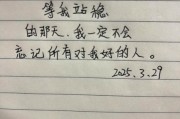 等我站稳
的那天，我一定不会
忘记所有对我好的人。
2025.3.29